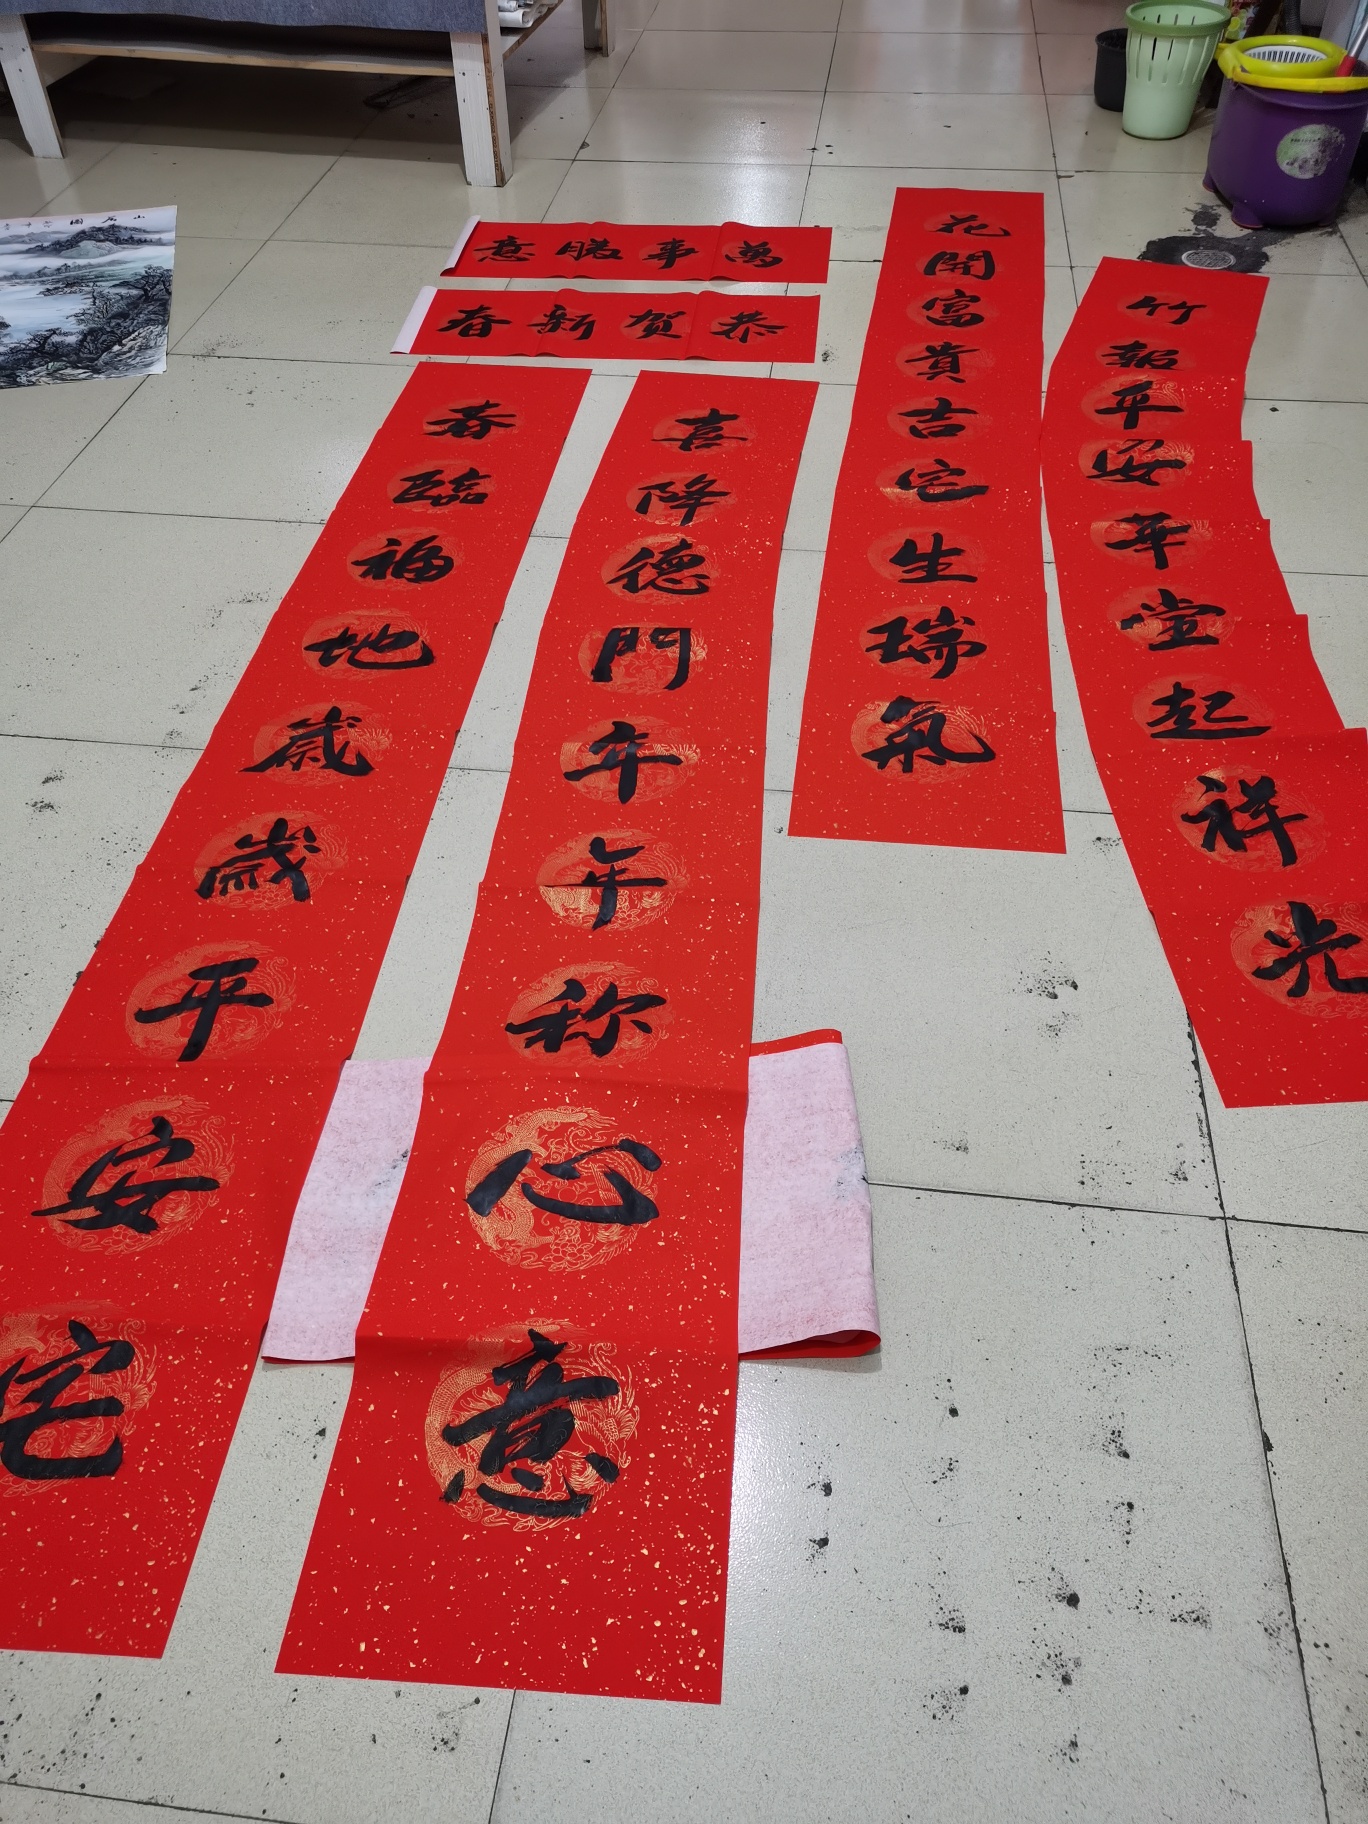 萬事勝意
恭贺新春
竹報平安華堂起祥光
花開富貴吉宅生瑞氣
喜降德門年年称心意
春臨福地歲歲平安宅